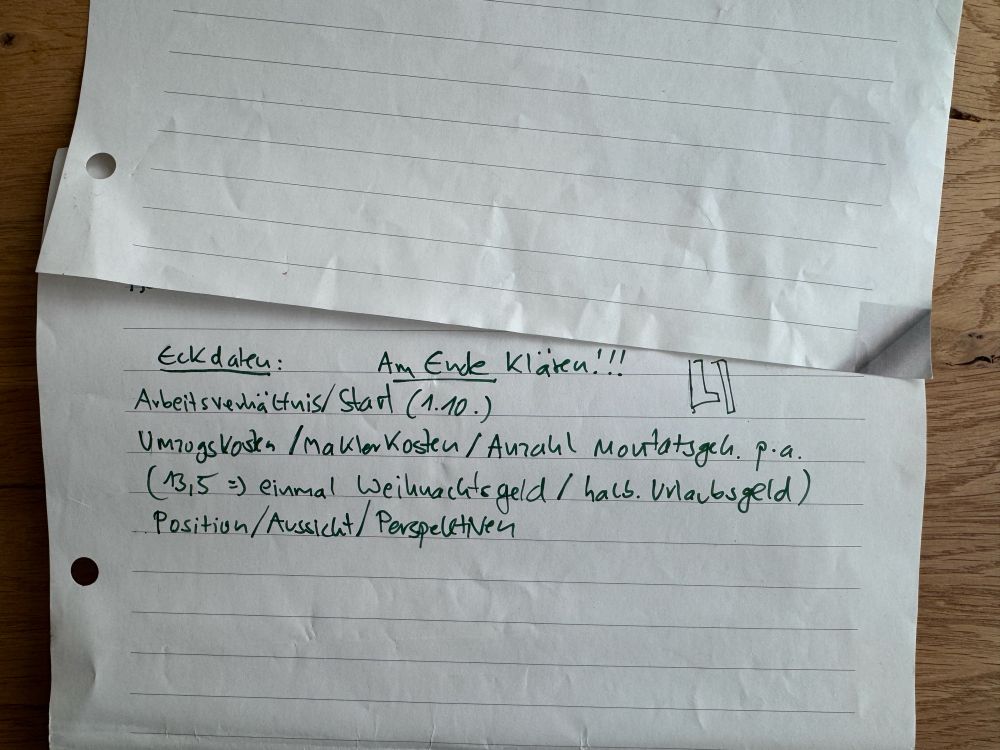 Eckdaten: Am Ende klären!!!
Arbeitsverhältnis/Start (1.10.)
Umzugskosten/Maklerkosten/Anzahl Monatsgeh. p.a.
(13,5 => einmal Weihnachtsgeld/halb. Urlaubsgeld)
Position/Aussicht/Perspektiven